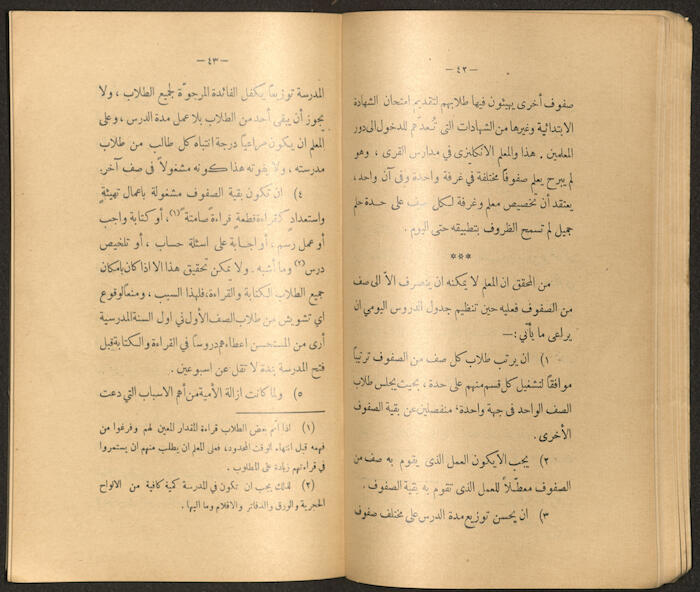 — ٤٢ —
صفوف أخرى يهيئون فيها طلابهم لتقديم امتحان الشهادة
الابتدائية وغيرها من الشهادات التى تُعدّهم للدخول الى دور
المعلمين . هذا والمعلم الانكليزى في مدارس القرى ، وهو
لم يبرح يعلم صفوفاً مختلفة في غرفة واحدة وفى آن واحد،
يعتقد أن تخصيص معلم وغرفة لكل صف على حدة حلم
جميل لم تسمح الظروف بتطبيقه حتى اليوم .
***
من المحقق ان المعلم لا يمكنه ان ينصرف الاّ الى صف
من الصفوف فعليه حين تنظيم جدول الدروس اليومي ان
يراعى ما يأتي :—
١) ان يرتب طلاب كل صف من الصفوف ترتيباً
موافقاً لتشغيل كل قسم منهم على حدة، بحيث يجلس طلاب
الصف الواحد فى جهة واحدة، منفصلين عن بقية الصفوف
الأخرى.
٢) يجب الايكون العمل الذى يقوم به صف من
الصفوف معطلاً للعمل الذى تقوم به بقية الصفوف .
٣) ان يحسن توزيع مدة الدرس على مختلف صفوف
— ٤٣ —
المدرسة توزيعاً يكفل الفائدة المرجوّة لجميع الطلاب ، ولا
يجوز أن يبقى أحد من الطلاب بلا عمل مدة الدرس ، وعلى
المعلم ان يكون مراعياً درجة انتباه كل طالب من طلاب
مدرسته ، ولا يفوته هذا كونه مشغولاً فى صف آخر.
٤) ان تكون بقية الصفوف مشغولة باعمال تهيئةٍ
واستعدادٍ كقراءة قطعةٍ قراءةً صامتةً (١)، أو كتابة واجب
أو عمل رسم ، أو اجابة على اسئلة حساب ، أو تلخيص
درس (٢) وما أشبه . ولا يمكن تحقيق هذا الا اذا كان بامكان
جميع الطلاب الكتابة والقراءة، فلهذا السبب ، ومنعاً لوقوع
اي تشويش من طلاب الصف الأول في اول السنة المدرسية
أرى من المستحسن اعطاءهم دروساً في القراءة والكتابة قبل
فتح المدرسة بمدة لا تقل عن اسبوعين .
٥) ولما كانت ازالة الأمية من أهم الاسباب التي دعت
(١) اذا أتم بعض الطلاب قراءة المقدار المعين لهم وفرغوا من
فهمه قبل انتهاء الوقت المحدود، فعلى المعلم ان يطلب منهم ان يستمروا
في قراءتهم زيادة على المطلوب .
(٢) لذلك يجب ان تكون في المدرسة كمية كافية من الالواح
الحجرية والورق والدفاتر والاقلام وما اليها .